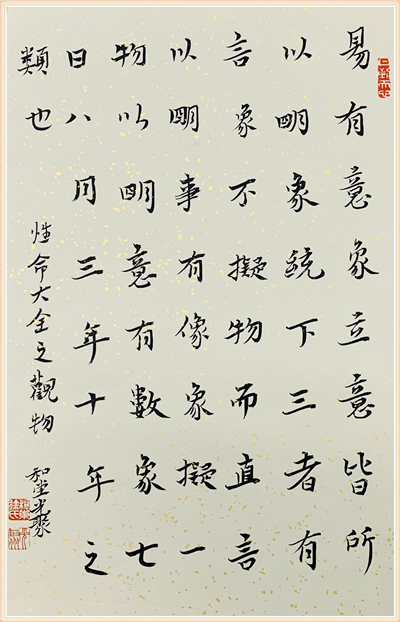 易有意象立意皆所
以明象統下三者有
言象不擬物而直言
以明事有像象擬一
物以明意有數象七
日八月三年十年之
類也
性命大全之觀物